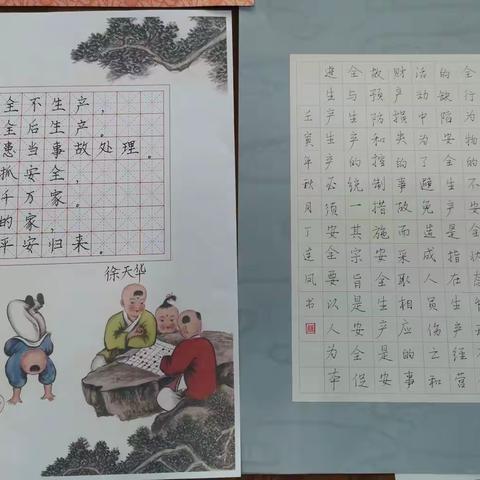 全不生产，
全后生产。
患当事故处理。
抓安全，
千万家。
的家，
平安归来。
徐天华
全行为物的不安全状
的缺陷安全生产是指在生产经营
活动中为了避免造成人员伤亡和
财产损失的事故而采取相应的事
故预防和控制措施安全生产是安
全与生产的统一其宗旨是安全促
进生产生产必须安全要以人为本
壬寅年秋月丁连凤书